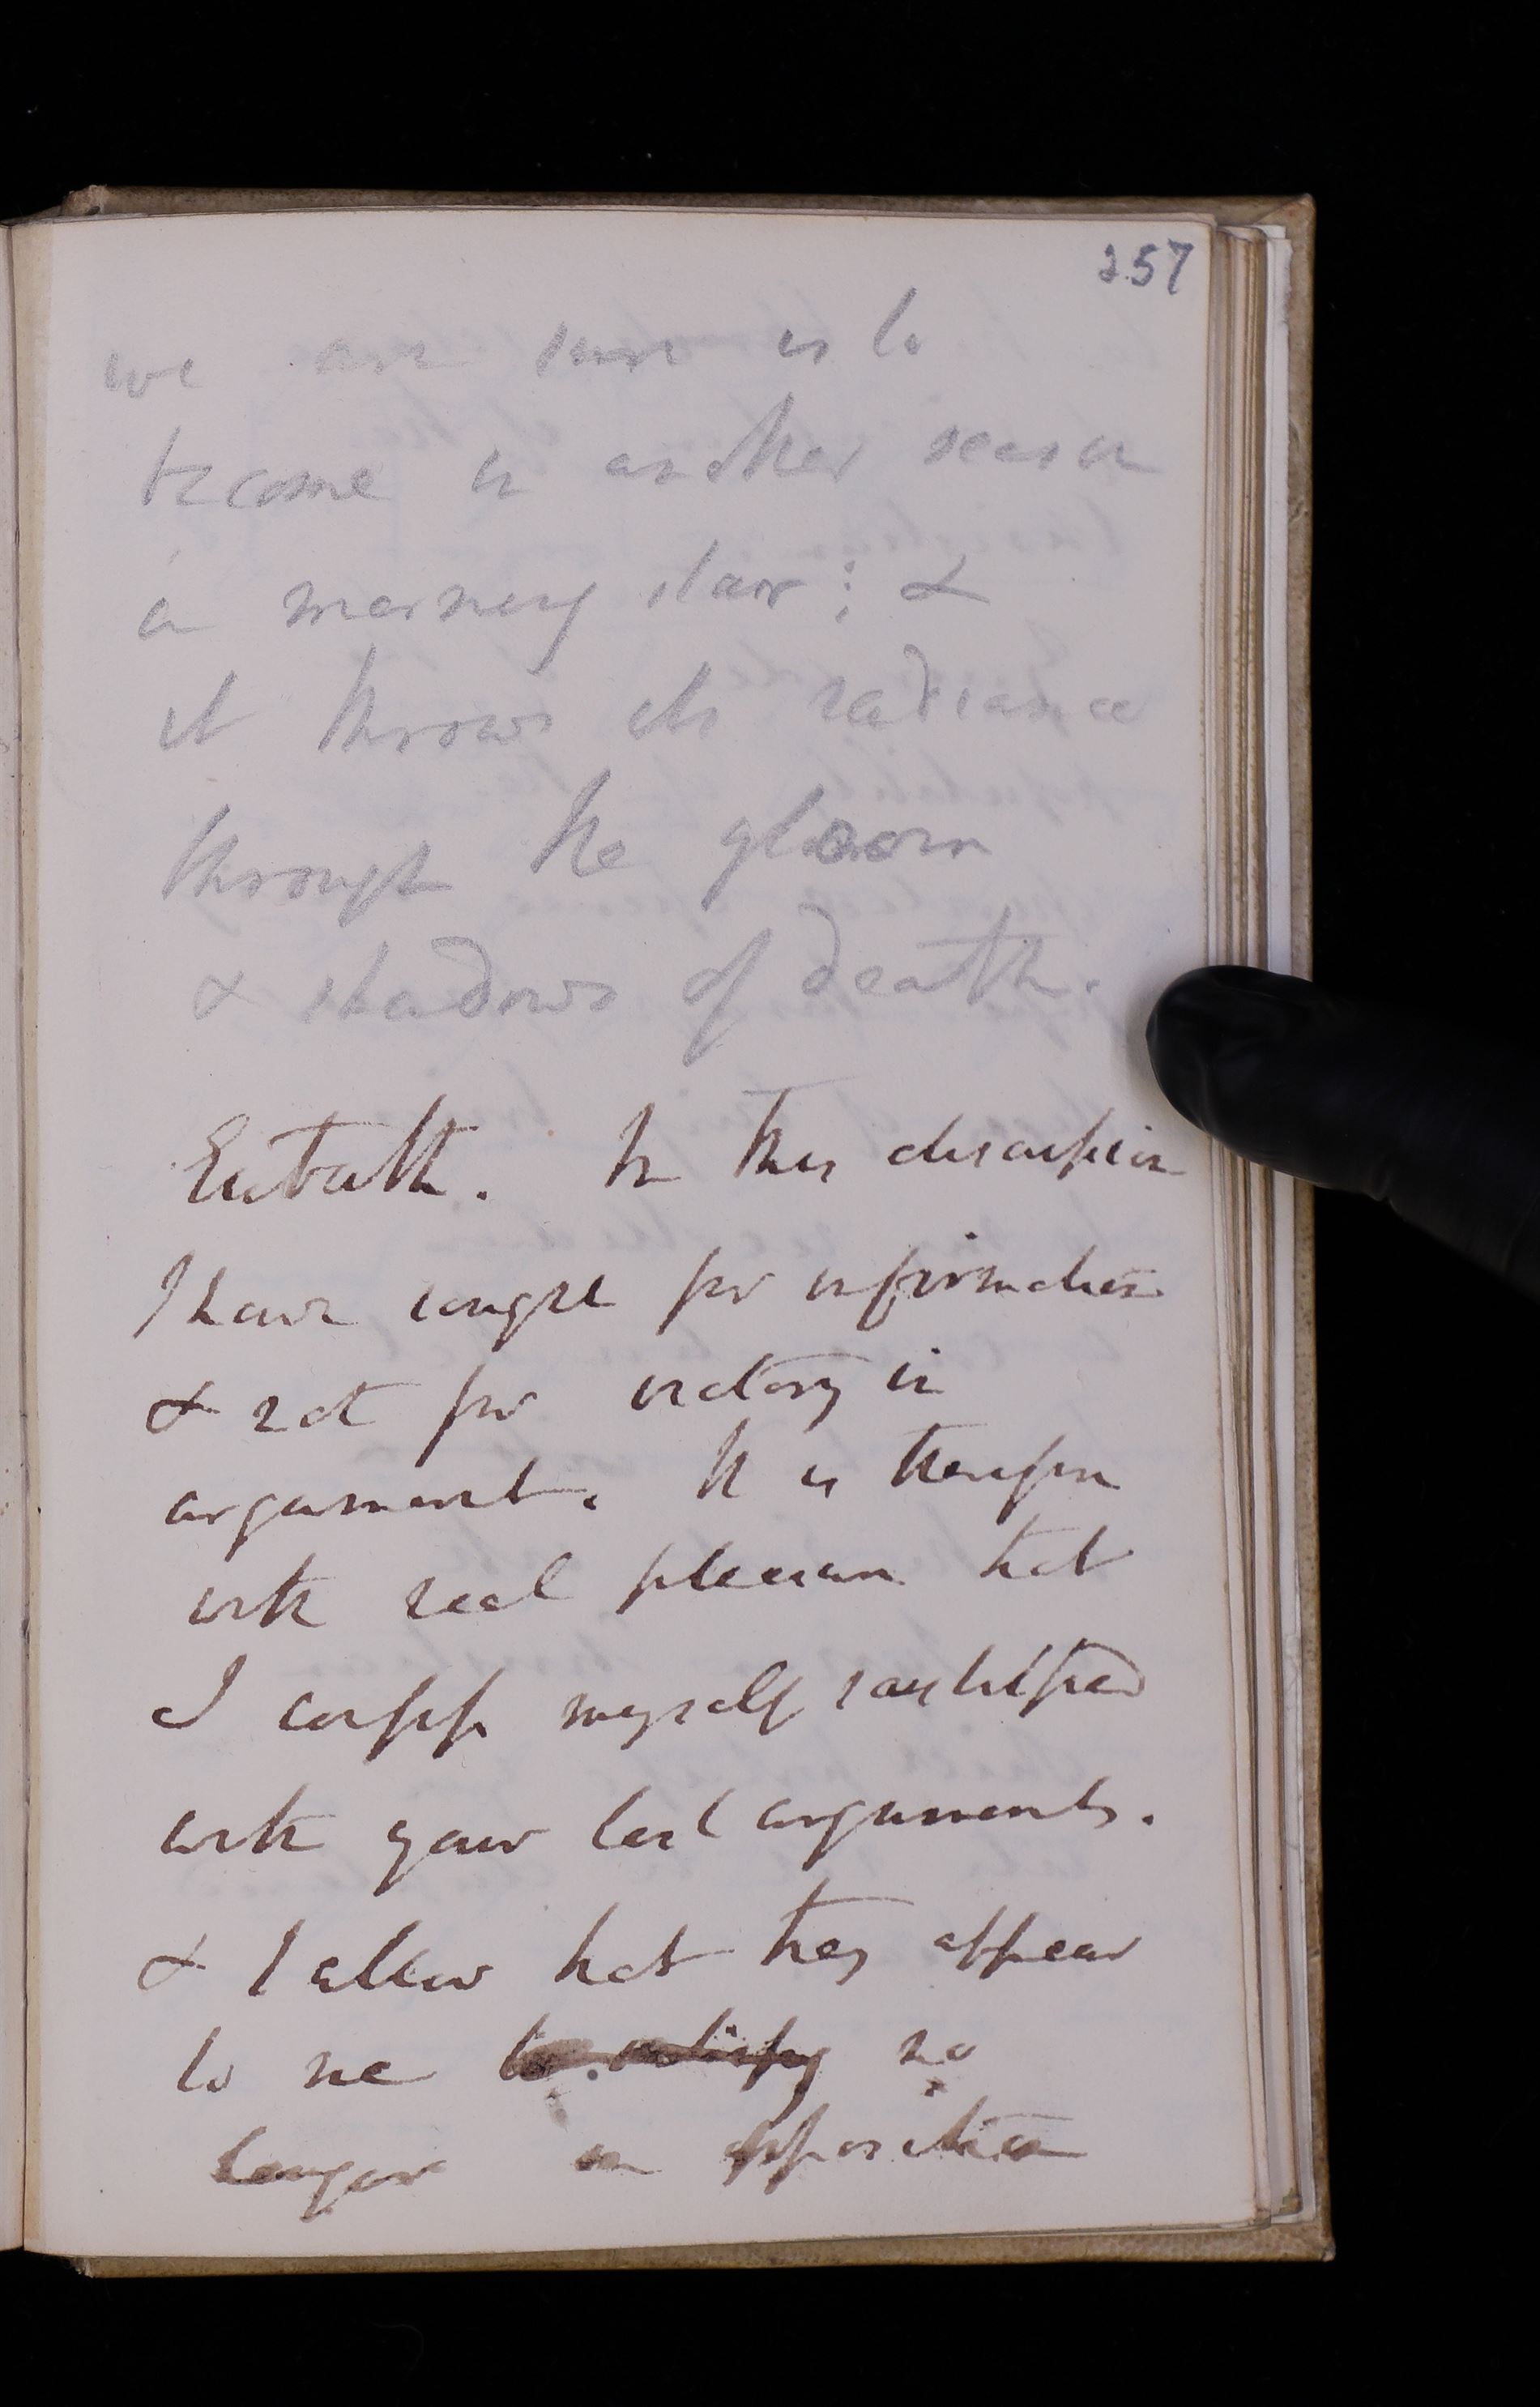 257
we are sure is to
become in another season
a morning star; &
it throws its radiance
through the gloom
& shadows of death.
Eubath. In this discussion
I have sought for information
& not for victory in
argument. It is therefore
with real pleasure that
I confess myself satisfied
with your last arguments.
& I allow that they appear
to me to satisfy no
longer in opposition